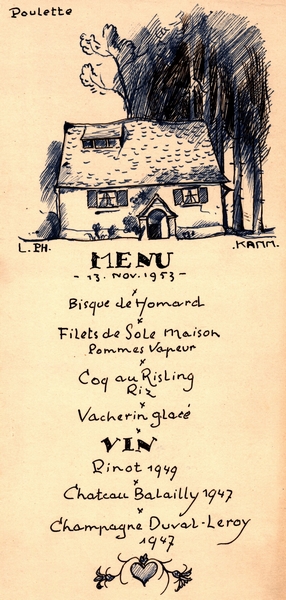 Poulette
L. PH. KAMM.
MENU
- 13. NOV. 1953 -
Bisque de Homard
Filets de Sole Maison
Pommes Vapeur
Coq au Risling
Riz
Vacherin glacé
VIN
Pinot 1949
Chateau Batailly 1947
Champagne Duval-Leroy
1947